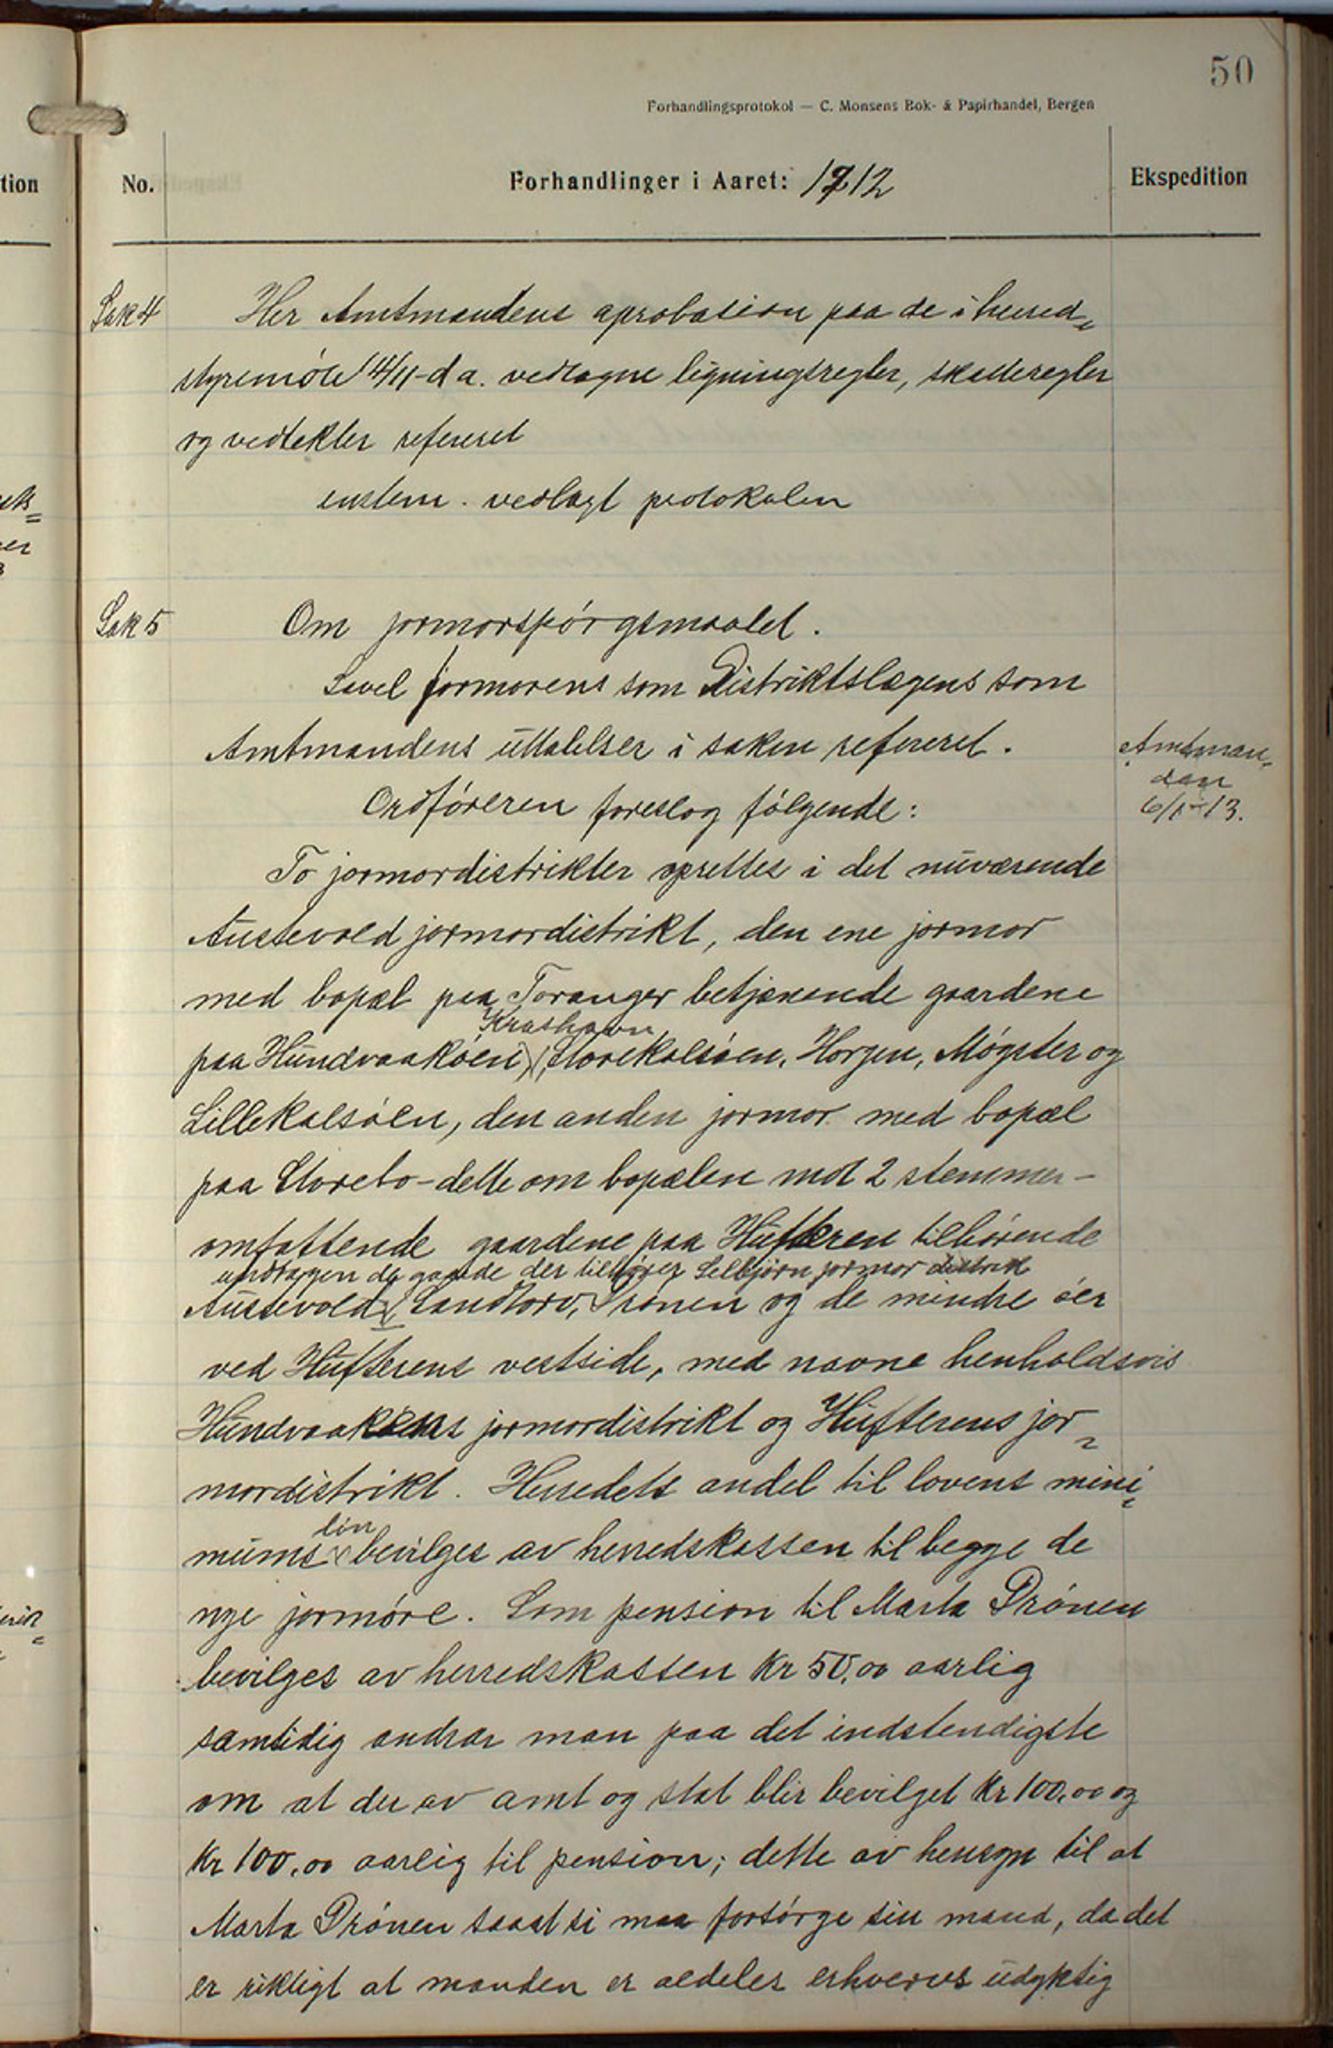 50
Forhandlingsprotokol — C. Monsens Bok- & Papirhandel, Bergen
tion
No.
Forhandlinger i Aaret: 1912
Ekspedition
Sak 4
Her Amtmandens aprobation paa de i herred=
styremöte 14/11-d a. vedtagne ligningsregler, skatteregler
og vedtekter referert
enstem. vedlagt protokolen
Sak 5
Om jormorspörgsmaalet.
Savel jormorens som Distriktslægens som
Amtmandens uttalelser i saken referert.
Amtman=
den
6/1-13.
Ordföreren foreslog fölgende:
To jormordistrikter oprettes i det nuværende
Austevold jormordistrikt, den ene jormor
med bopæl paa Toranger betjenende gaardene
Krashavn
paa Hundvaaköen, Storekalsöen, Horgen, Mögster og
Lillekalsöen, den anden jormor med bopæl
paa Storebö - dette om bopælen mot 2 stemmer -
omfattende gaardene paa Hufteren tilhörende
undtagen de gaarde der tilhører Selbjørn jormor distrikt
Austevold, Sandtorv, Drönen og de mindre öer
ved Hufterens vestside, med navne henholdsvis
Hundvaaköens jormordistrikt og Hufterens jor=
mordistrikt. Herredets andel til lovens mini=
lön
mums bevilges av herredskassen til begge de
nye jormöre. Som pension til Marta Drönen
bevilges av herredskassen Kr 50,00 aarlig
samtidig andrar man paa det indstendigste
om at der av amt og stat blir bevilget Kr 100,00 og
Kr 100,00 aarlig til pension; dette av hensyn til at
Marta Drönen saa at si maa forsörge sin mand, da det
er riktigt at manden er aldeles erhvervs udyktig